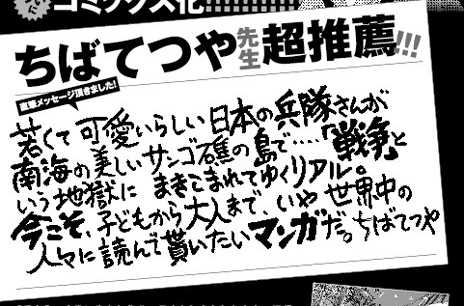 コミックス化!!!!!!!!!
ちばてつや先生超推薦!!!
直筆メッセージ頂きました!
若くて可愛いらしい日本の兵隊さんが
南海の美しいサンゴ礁の島で……「戦争」と
いう地獄に まきこまれてゆくリアル。
今こそ、子どもから大人まで、いや世界中の
人々に読んで貰いたいマンガだ。ちばてつや